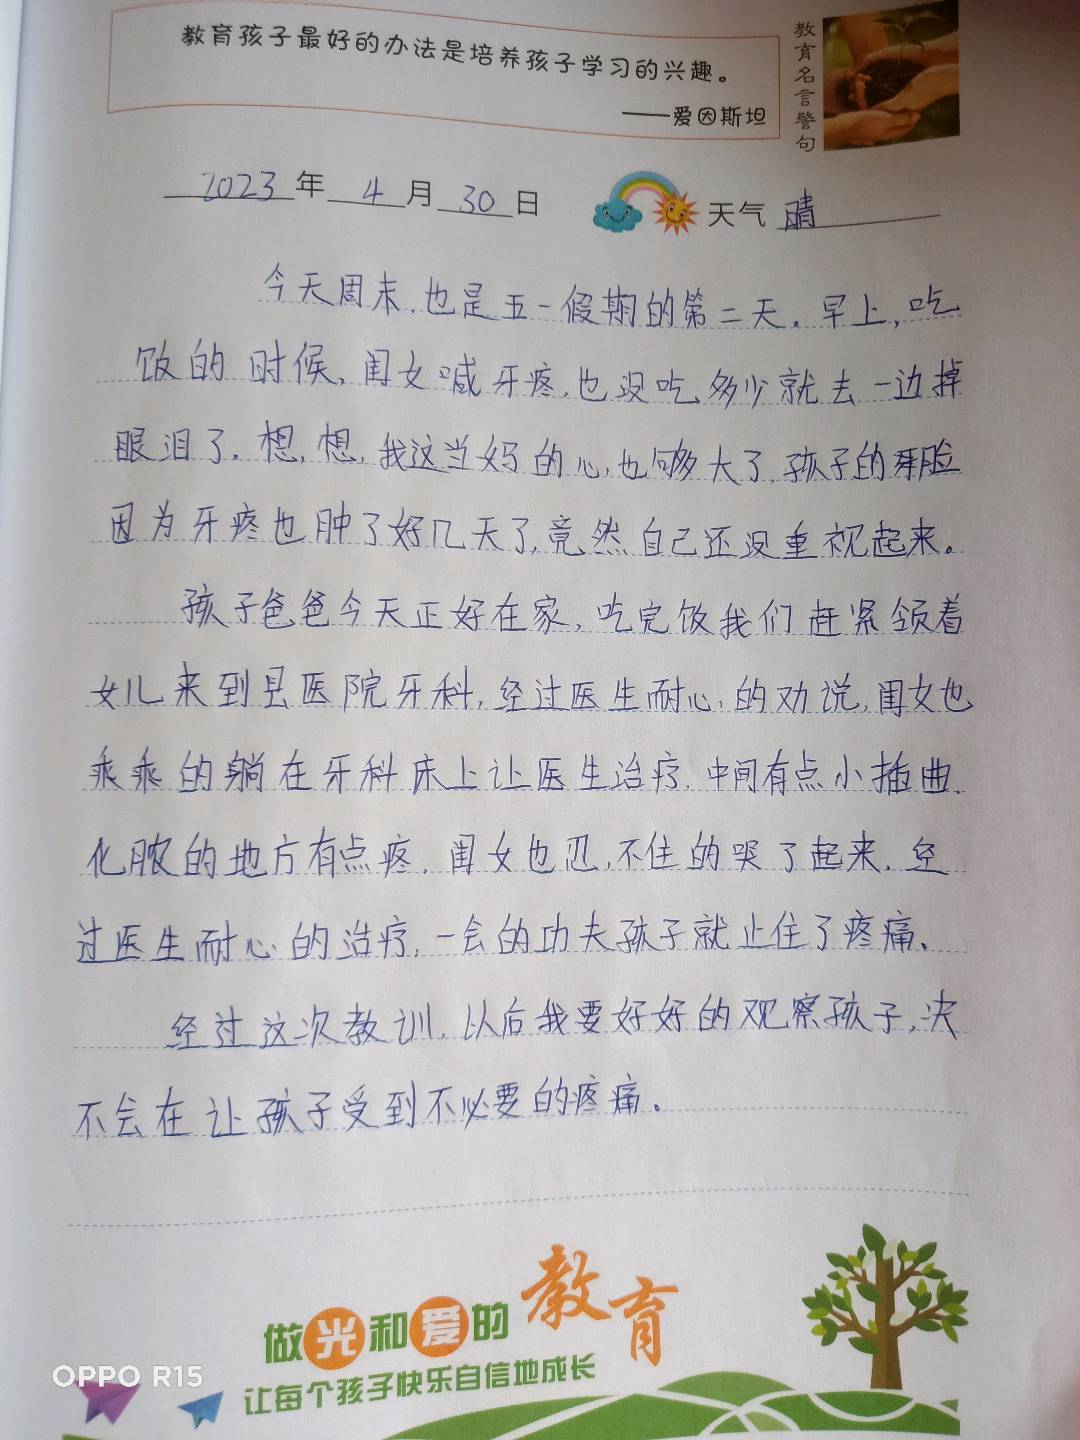 教育孩子最好的办法是培养孩子学习的兴趣。
——爱因斯坦
教育名言警句
2023年4月30日 天气 晴
今天周末,也是五一假期的第二天。早上,吃
饭的时候,闺女喊牙疼,也没吃多少就去一边掉
眼泪了。想,想,我这当妈的心,也够大了,孩子的脸
因为牙疼也肿了好几天了,竟然自己还没重视起来。
孩子爸爸今天正好在家,吃完饭我们赶紧领着
女儿来到县医院牙科,经过医生耐心,的劝说,闺女也
乖乖的躺在牙科床上让医生治疗,中间有点小插曲,
化脓的地方有点疼,闺女也忍,不住的哭了起来,经
过医生耐心的治疗,一会的功夫孩子就止住了疼痛、
经过这次教训,以后我要好好的观察孩子,决
不会在让孩子受到不必要的疼痛。
做光和爱的教育
让每个孩子快乐自信地成长
OPPO R15